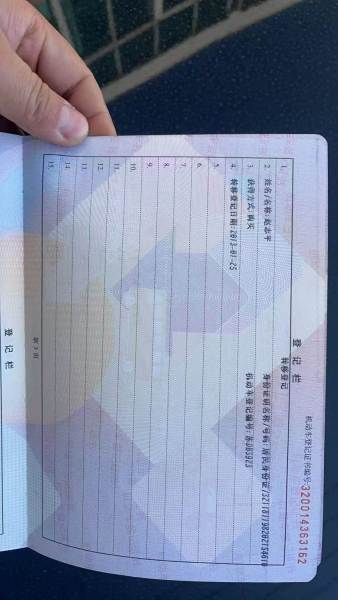 机动车登记证书编号:320014363162
登记栏
1. 转移登记
2. 姓名/名称:赵志平 身份证明名称/号码:居民身份证/
3. 获得方式:购买 机动车登记编号:
4. 转移登记日期:2013-01-25
5.
6.
7.
8.
9.
10.
11.
12.
13.
14.
15.
第 3 页
登记栏